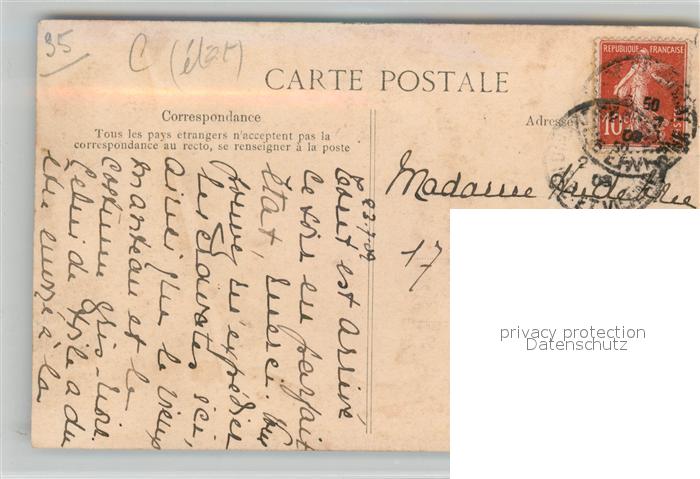 95
C (état)
CARTE POSTALE
Correspondance
Tous les pays étrangers n'acceptent pas la
correspondance au recto, se renseigner à la poste
Adresse
REPUBLIQUE FRANÇAISE
10
Madame
17
Tout est arrivé
ce soir en parfait
état, merci.
expédier
les cravates ici,
ainsi que le vieux
manteau et le
costume gris-noir.
Celui de toile a du
être envoyé à la
privacy protection
Datenschutz